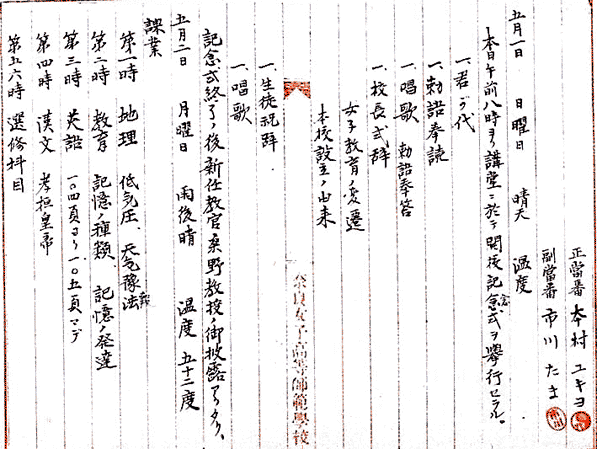 正當番 本村ユキヨ
副當番 市川たま
五月一日 日曜日 晴天 温度
本日午前八時ヨリ講堂ニ於テ開校記念式ヲ擧行セラル。
一、君ガ代
一、勅語奉読
一、唱歌 勅語奉答
一、校長式辞
女子教育ノ変遷
本校設立ノ由来
奈良女子高等師範學校
一、生徒祝辞
一、唱歌
記念式終了ノ後新任教官桑野教授ノ御披露アリタリ、
五月二日 月曜日 雨後晴 温度 五十二度
課業
第一時 地理 低気圧、天気豫報法
第二時 教育 記憶ノ種類、記憶ノ発達
第三時 英語 一〇四頁ヨリ一〇五頁マデ
第四時 漢文 孝桓皇帝
第五六時 選修科目